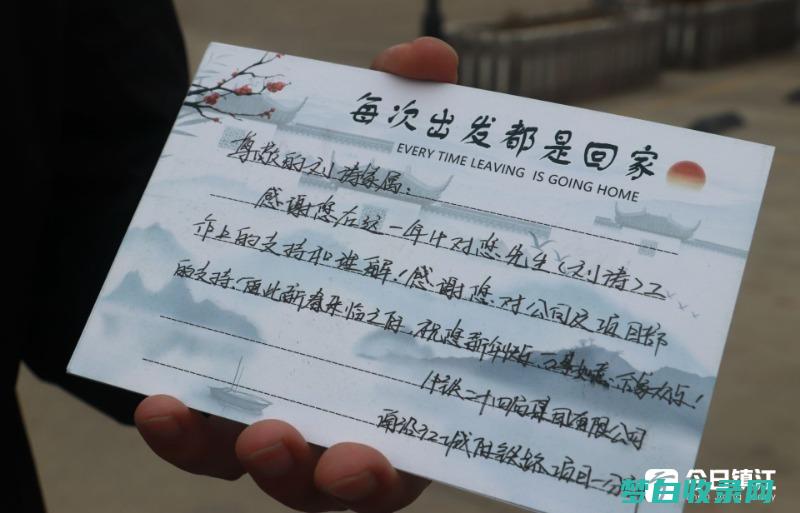 每次出发都是回家
EVERY TIME LEAVING IS GOING HOME
尊敬的刘涛家属：
感谢您在这一年中对您先生（刘涛）工
作上的支持和理解！感谢您对公司及项目部
的支持。值此新春来临之际，祝您新年快乐，万事如意，合家欢乐！
中铁二十四局集团有限公司
南沿江城际铁路项目一分
今日镇江
梦白收录网